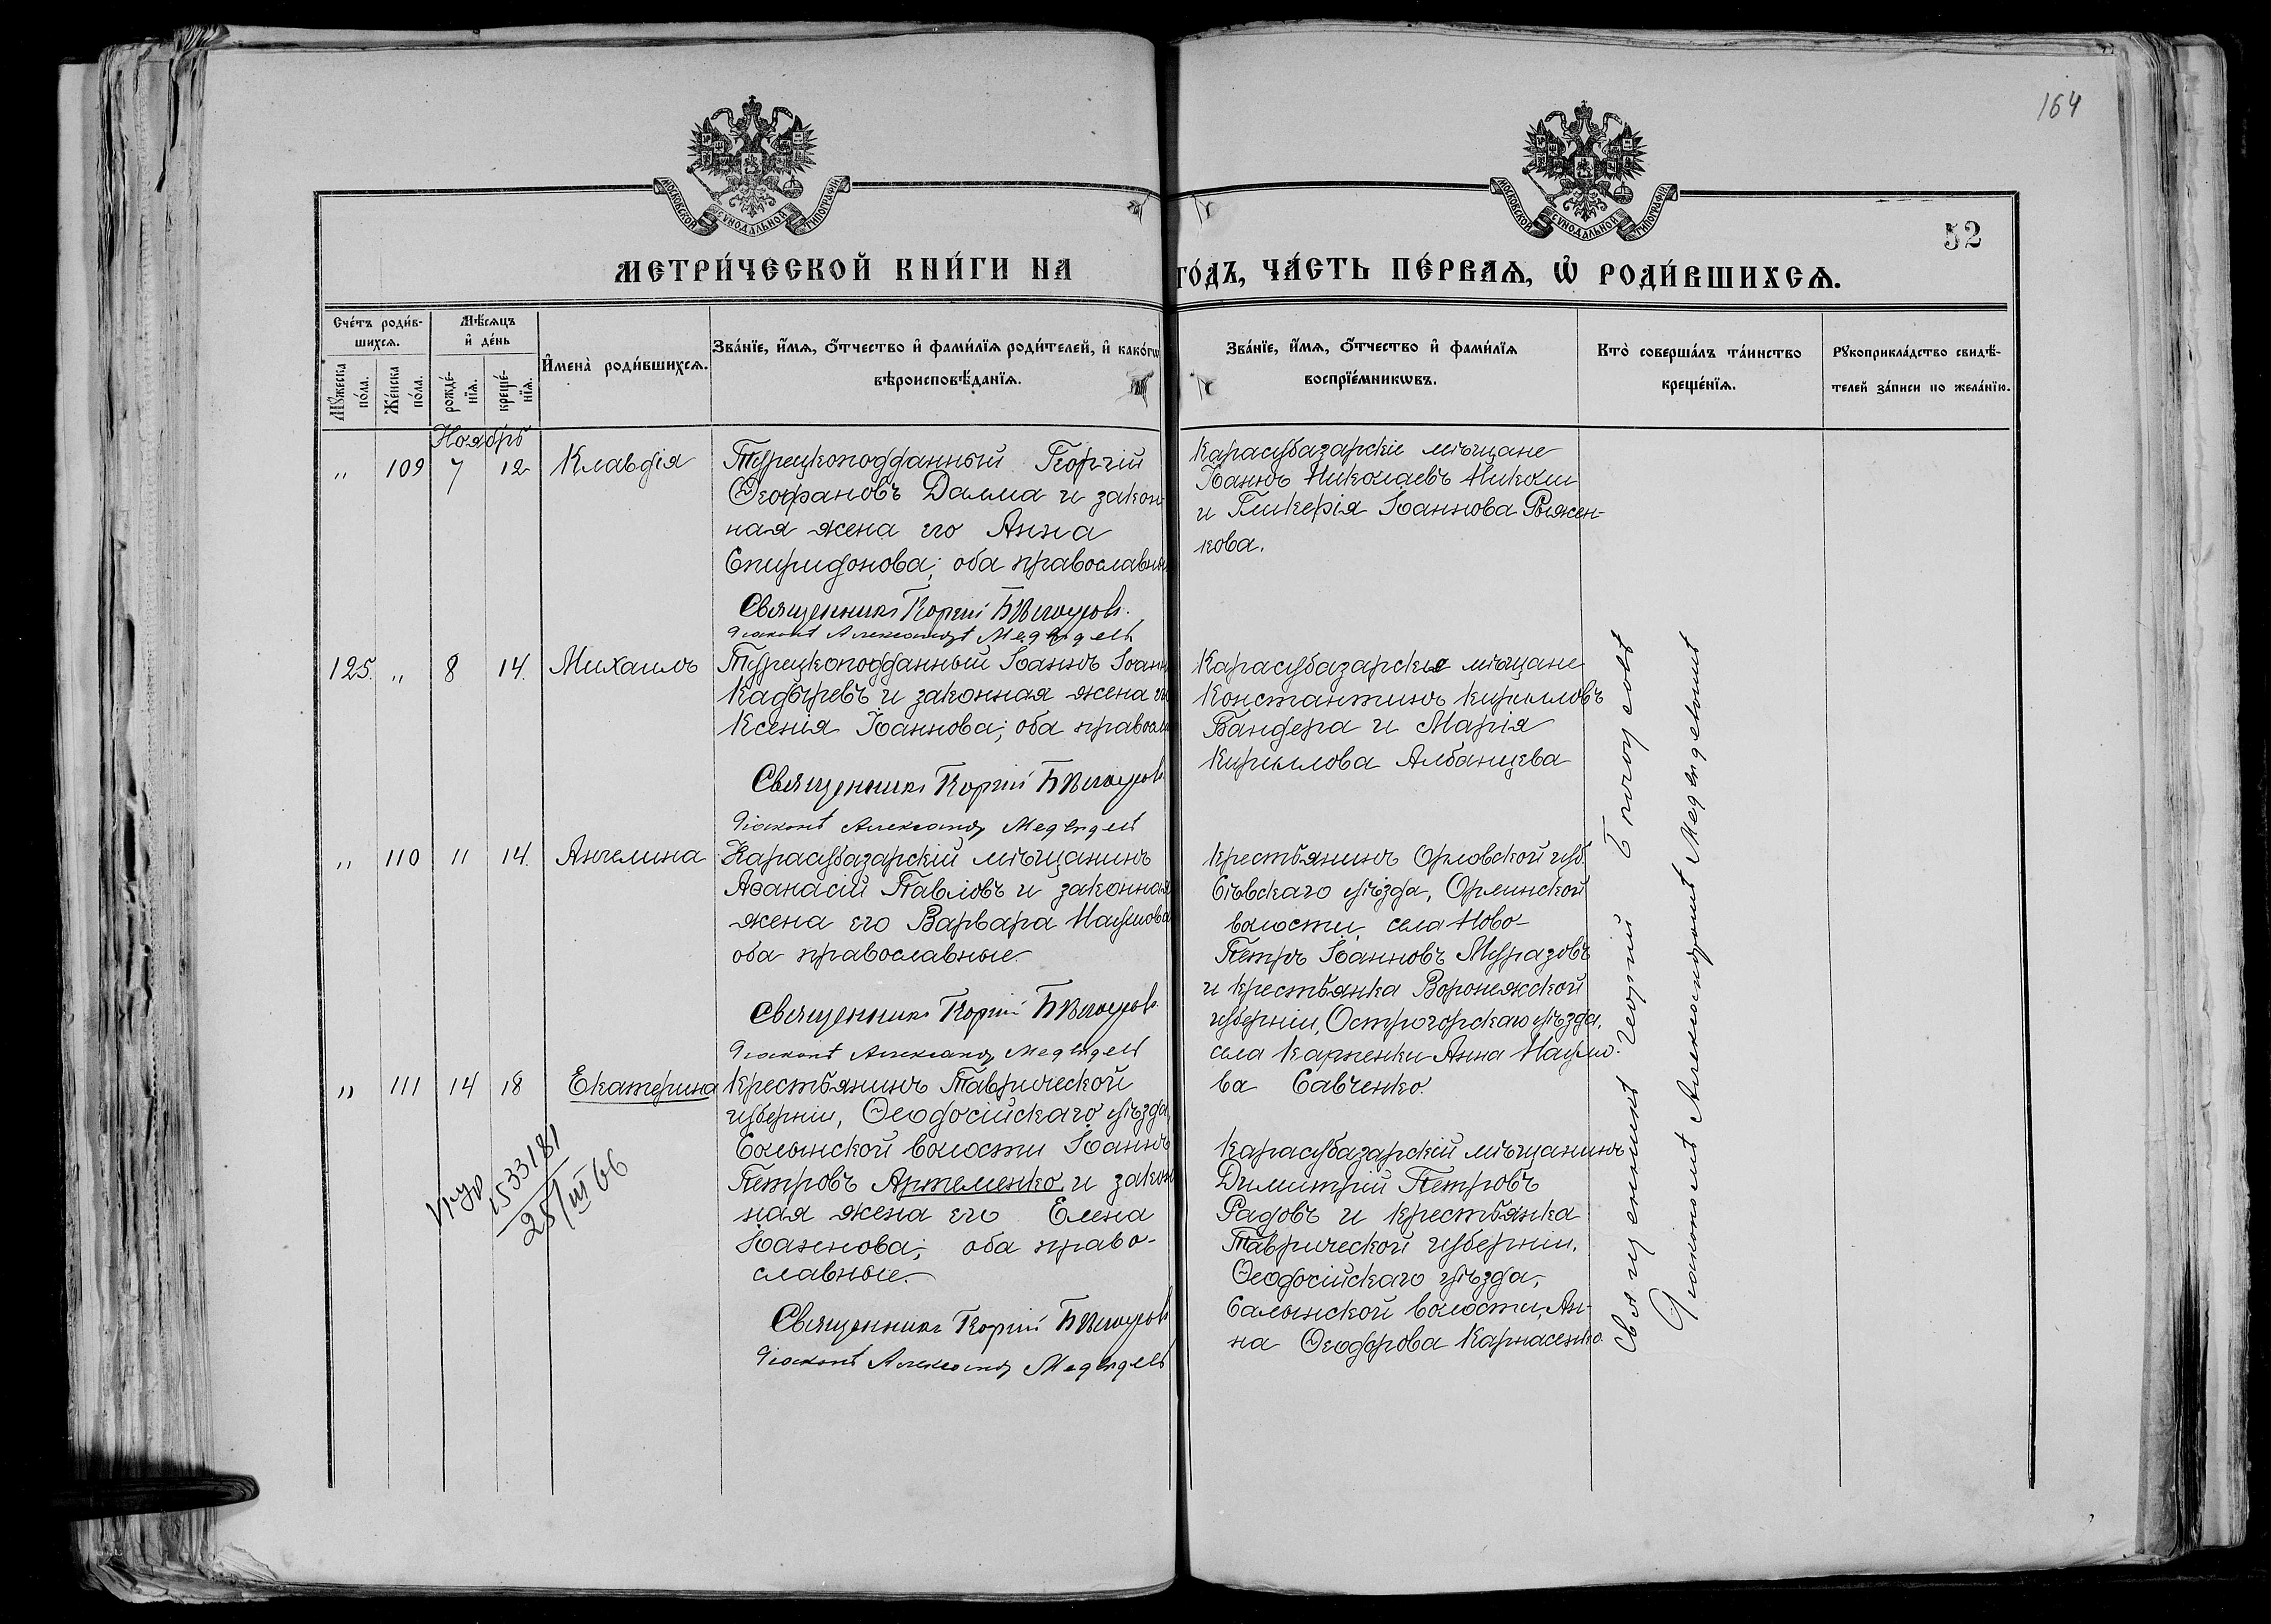 164
МОСКОВСКОЙ СѴНОДАЛЬНОЙ ТИПОГРАФІИ
МОСКОВСКОЙ СѴНОДАЛЬНОЙ ТИПОГРАФІИ
52
МЕТРИ́ЧЕСКОЙ КНИ́ГИ НА
ГО́ДЪ, ЧА́СТЬ ПЕ́РВАѦ, Ѡ҆ РОДИ́ВШИХСѦ.
Сче́тъ роди́в-
шихсѧ.
Мꙋ́жеска
по́ла.
Же́нска
по́ла.
Мѣ́сѧцъ
и҆ де́нь
рожде́-
нїѧ.
креще́-
нїѧ.
И҆мена̀ роди́вшихсѧ.
Зва́нїе, и҆́мѧ, ѻ҆́тчество и҆ фами́лїѧ роди́телей, и҆ како́гѡ
вѣроисповѣ́данїѧ.
Зва́нїе, и҆́мѧ, ѻ҆́тчество и҆ фами́лїѧ
воспрїе́мникѡвъ.
Кто̀ соверша́лъ та́инство
креще́нїѧ.
Рꙋкоприкла́дство свидѣ́-
телей за́писи по жела́нїю.
Ноябрь
„ 109 7 12 Клавдія
Турецкоподданный Георгій
Ѳеофановъ Далма и закон-
ная жена его Анна
Спиридонова; оба православн
Священникъ Георгій
Діаконъ Александръ Медвѣдевъ
Карасубазарскіе мѣщане
Іоаннъ Николаевъ Николи
и Гликерія Іоаннова Рыжен-
кова.
125. „ 8 14. Михаилъ
Турецкоподданный Іоаннъ Іоанн
Кадыревъ и законная жена его
Ксенія Іоаннова; оба правосла
Священникъ Георгій
Діаконъ Александръ Медвѣдевъ
Карасубазарскіе мѣщане
Константинъ Кирилловъ
Бандера и Марія
Кириллова Албанцева
„ 110 11 14. Ангелина
Карасубазарскій мѣщанинъ
Аѳанасій Павловъ и законная
жена его Варвара Наумова
оба православные.
Священникъ Георгій
Діаконъ Александръ Медвѣдевъ
Крестьянинъ Орловской губ.
Сѣвскаго уѣзда, Орлинской
волости, села Ново-
Петръ Іоанновъ Муразовъ
и крестьянка Воронежской
губерніи, Острогорскаго уѣзда,
села Карпенки Анна Наумо-
ва Савченко.
„ 111 14 18 Екатерина
1533181
25/III 66
Крестьянинъ Таврической
губерніи, Ѳеодосійскаго уѣзда,
Салынской волости Іоаннъ
Петровъ Артеменко и закон
ная жена его Елена
Іоаннова; оба право-
славные.
Священникъ Георгій
Діаконъ Александръ Медвѣдевъ
Карасубазарскій мѣщанинъ
Димитрій Петровъ
Радовъ и крестьянка
Таврической губерніи,
Ѳеодосійскаго уѣзда,
Салынской волости, Ан-
на Ѳеодорова Карнасенко.
Священникъ Георгій
Діакономъ Александромъ Медвѣдевымъ